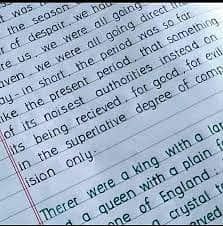 was
the season
r of despair, we ha
re us, we were all going
aven, we were all going direct
ay- in short, the period was so far
like the present period, that something
of its noisest authorities insisted on
its being recieved, for good, for evi
in the superlative degree of com
ision only.
Therer were a king with a lar
d a queen with a plain f
ne of England ;
a crystal
erved